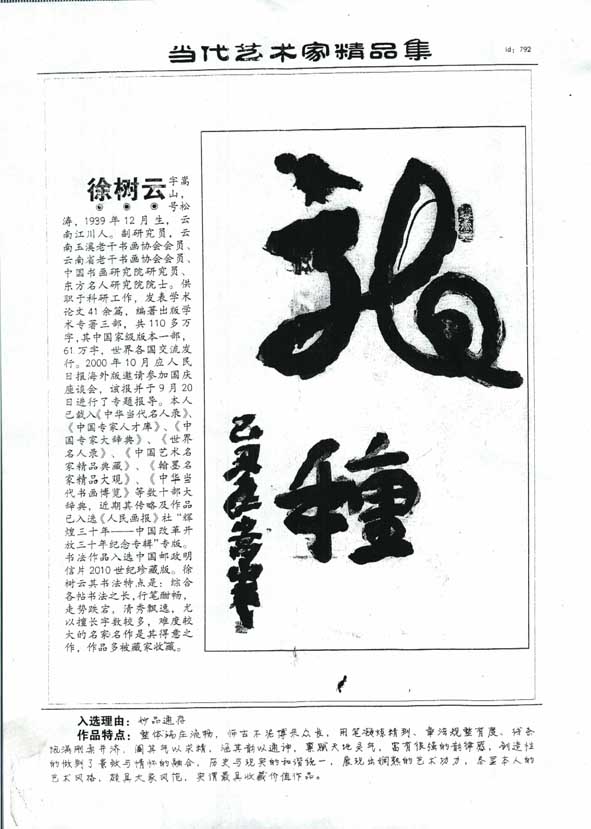 当代艺术家精品集
id: 792
徐树云 字嵩
山，
号松
涛，1939年12月生，云
南江川人。副研究员，云
南玉溪老干书画协会会员、
云南省老干书画协会会员、
中国书画研究院研究员、
东方名人研究院院士。供
职于科研工作，发表学术
论文41余篇，编著出版学
术专著三部，共110多万
字，其中国家级版本一部，
61万字，世界各国交流发
行。2000年10月应人民
日报海外版邀请参加国庆
座谈会，该报并于9月20
日进行了专题报导。本人
已载入《中华当代名人录》、
《中国专家人才库》、《中
国专家大辞典》、《世界
名人录》、《中国艺术名
家精品典藏》、《翰墨名
家精品大观》、《中华当
代书画博览》等数十部大
辞典，近期其传略及作品
已入选《人民画报》社“辉
煌三十年——中国改革开
放三十年纪念专辑”专版。
书法作品入选中国邮政明
信片2010世纪珍藏版。徐
树云其书法特点是：综合
各帖书法之长，行笔酣畅，
走势跌宕，清秀飘逸，尤
以擅长字数较多，难度较
大的名家名作是其得意之
作，作品多被藏家收藏。
龙
种
己丑年
入选理由：妙品遒荐
作品特点：整体端庄流畅，师古不泥博采众长，用笔凝练精到、章法规整有度、体态
饱满刚柔并济，阐其气以求精，涵其韵以通神，禀赋天地灵气，富有很强的韵律感，创造性
的做到了景致与情怀的融合，历史与现实的和谐统一，展现出娴熟的艺术功力，尽显本人的
艺术风格，颇具大家风范，实谓最具收藏价值作品。